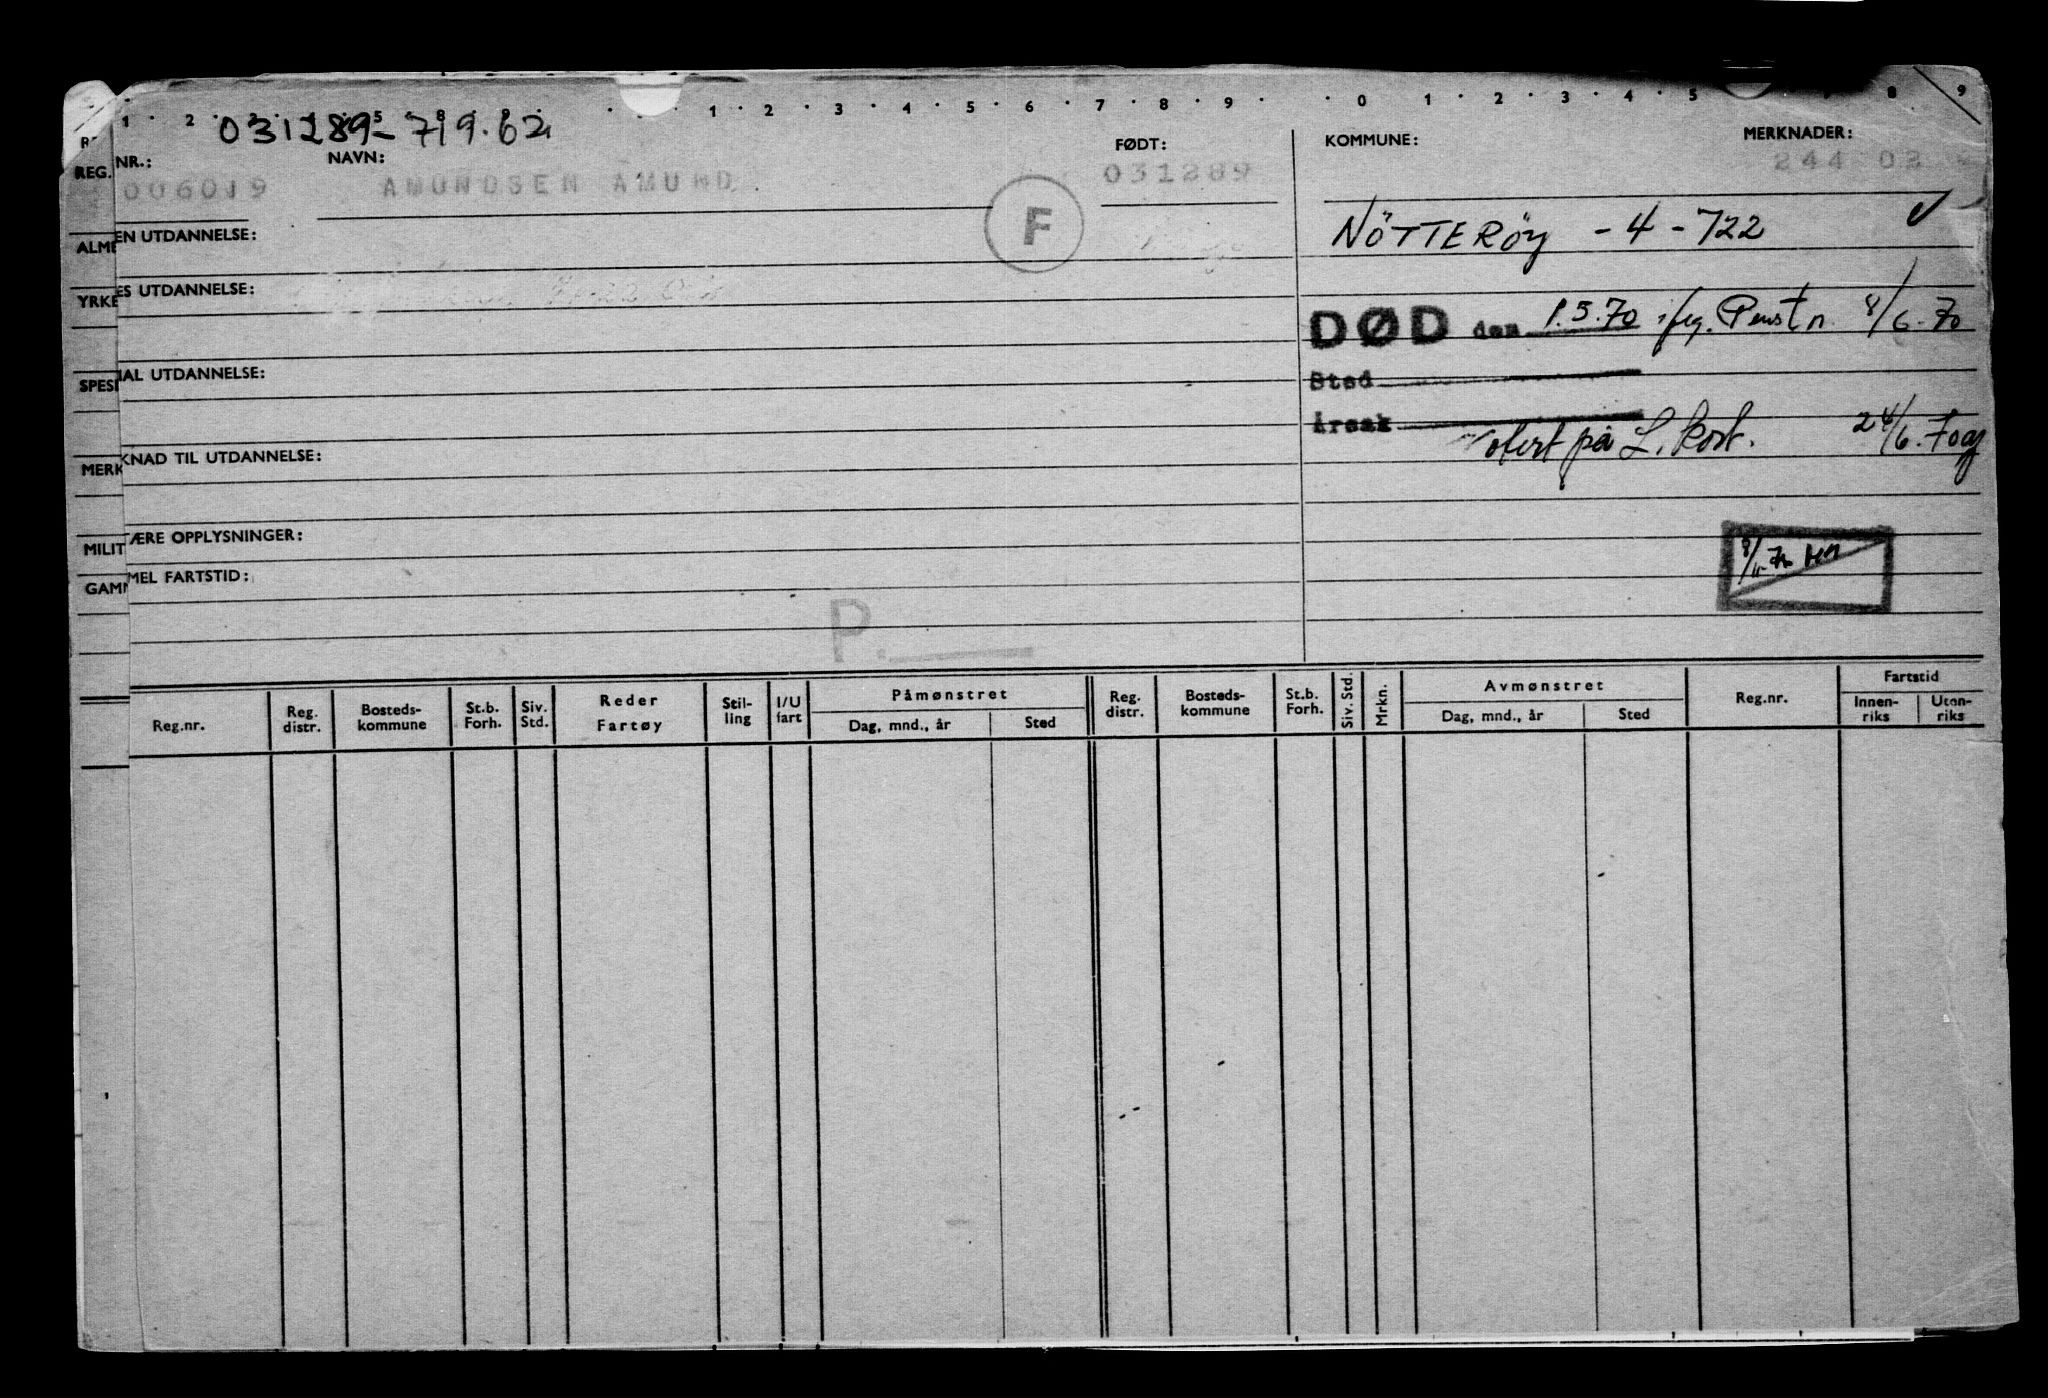 1 2 5 8 1 2 3 4 5 6 7 8 9 0 1 2 3 4 5 8 9
031289-719.62
REG. NR.: NAVN: FØDT: KOMMUNE: MERKNADER:
006019 AMUNDSEN AMUND 031289 244 02
F NÖTTERÖY - 4 - 722
ALME EN UTDANNELSE:
YRKE ES UTDANNELSE:
DØD den 1.5.70 8/6.70
SPESI IAL UTDANNELSE:
Sted
Årsak
på L. kort. 24/6.70
MERK KNAD TIL UTDANNELSE:
MILIT ÆRE OPPLYSNINGER:
GAMM MEL FARTSTID:
P.
Reg.nr. Reg. distr. Bosteds- kommune St.b. Forh. Siv. Std. Reder Fartøy Stil- ling I/U fart Påmønstret Dag, mnd., år Sted Reg. distr. Bosteds- kommune St.b. Forh. Siv. Std. Mrkn. Avmønstret Dag, mnd., år Sted Reg.nr. Fartstid Innen- riks Uten- riks